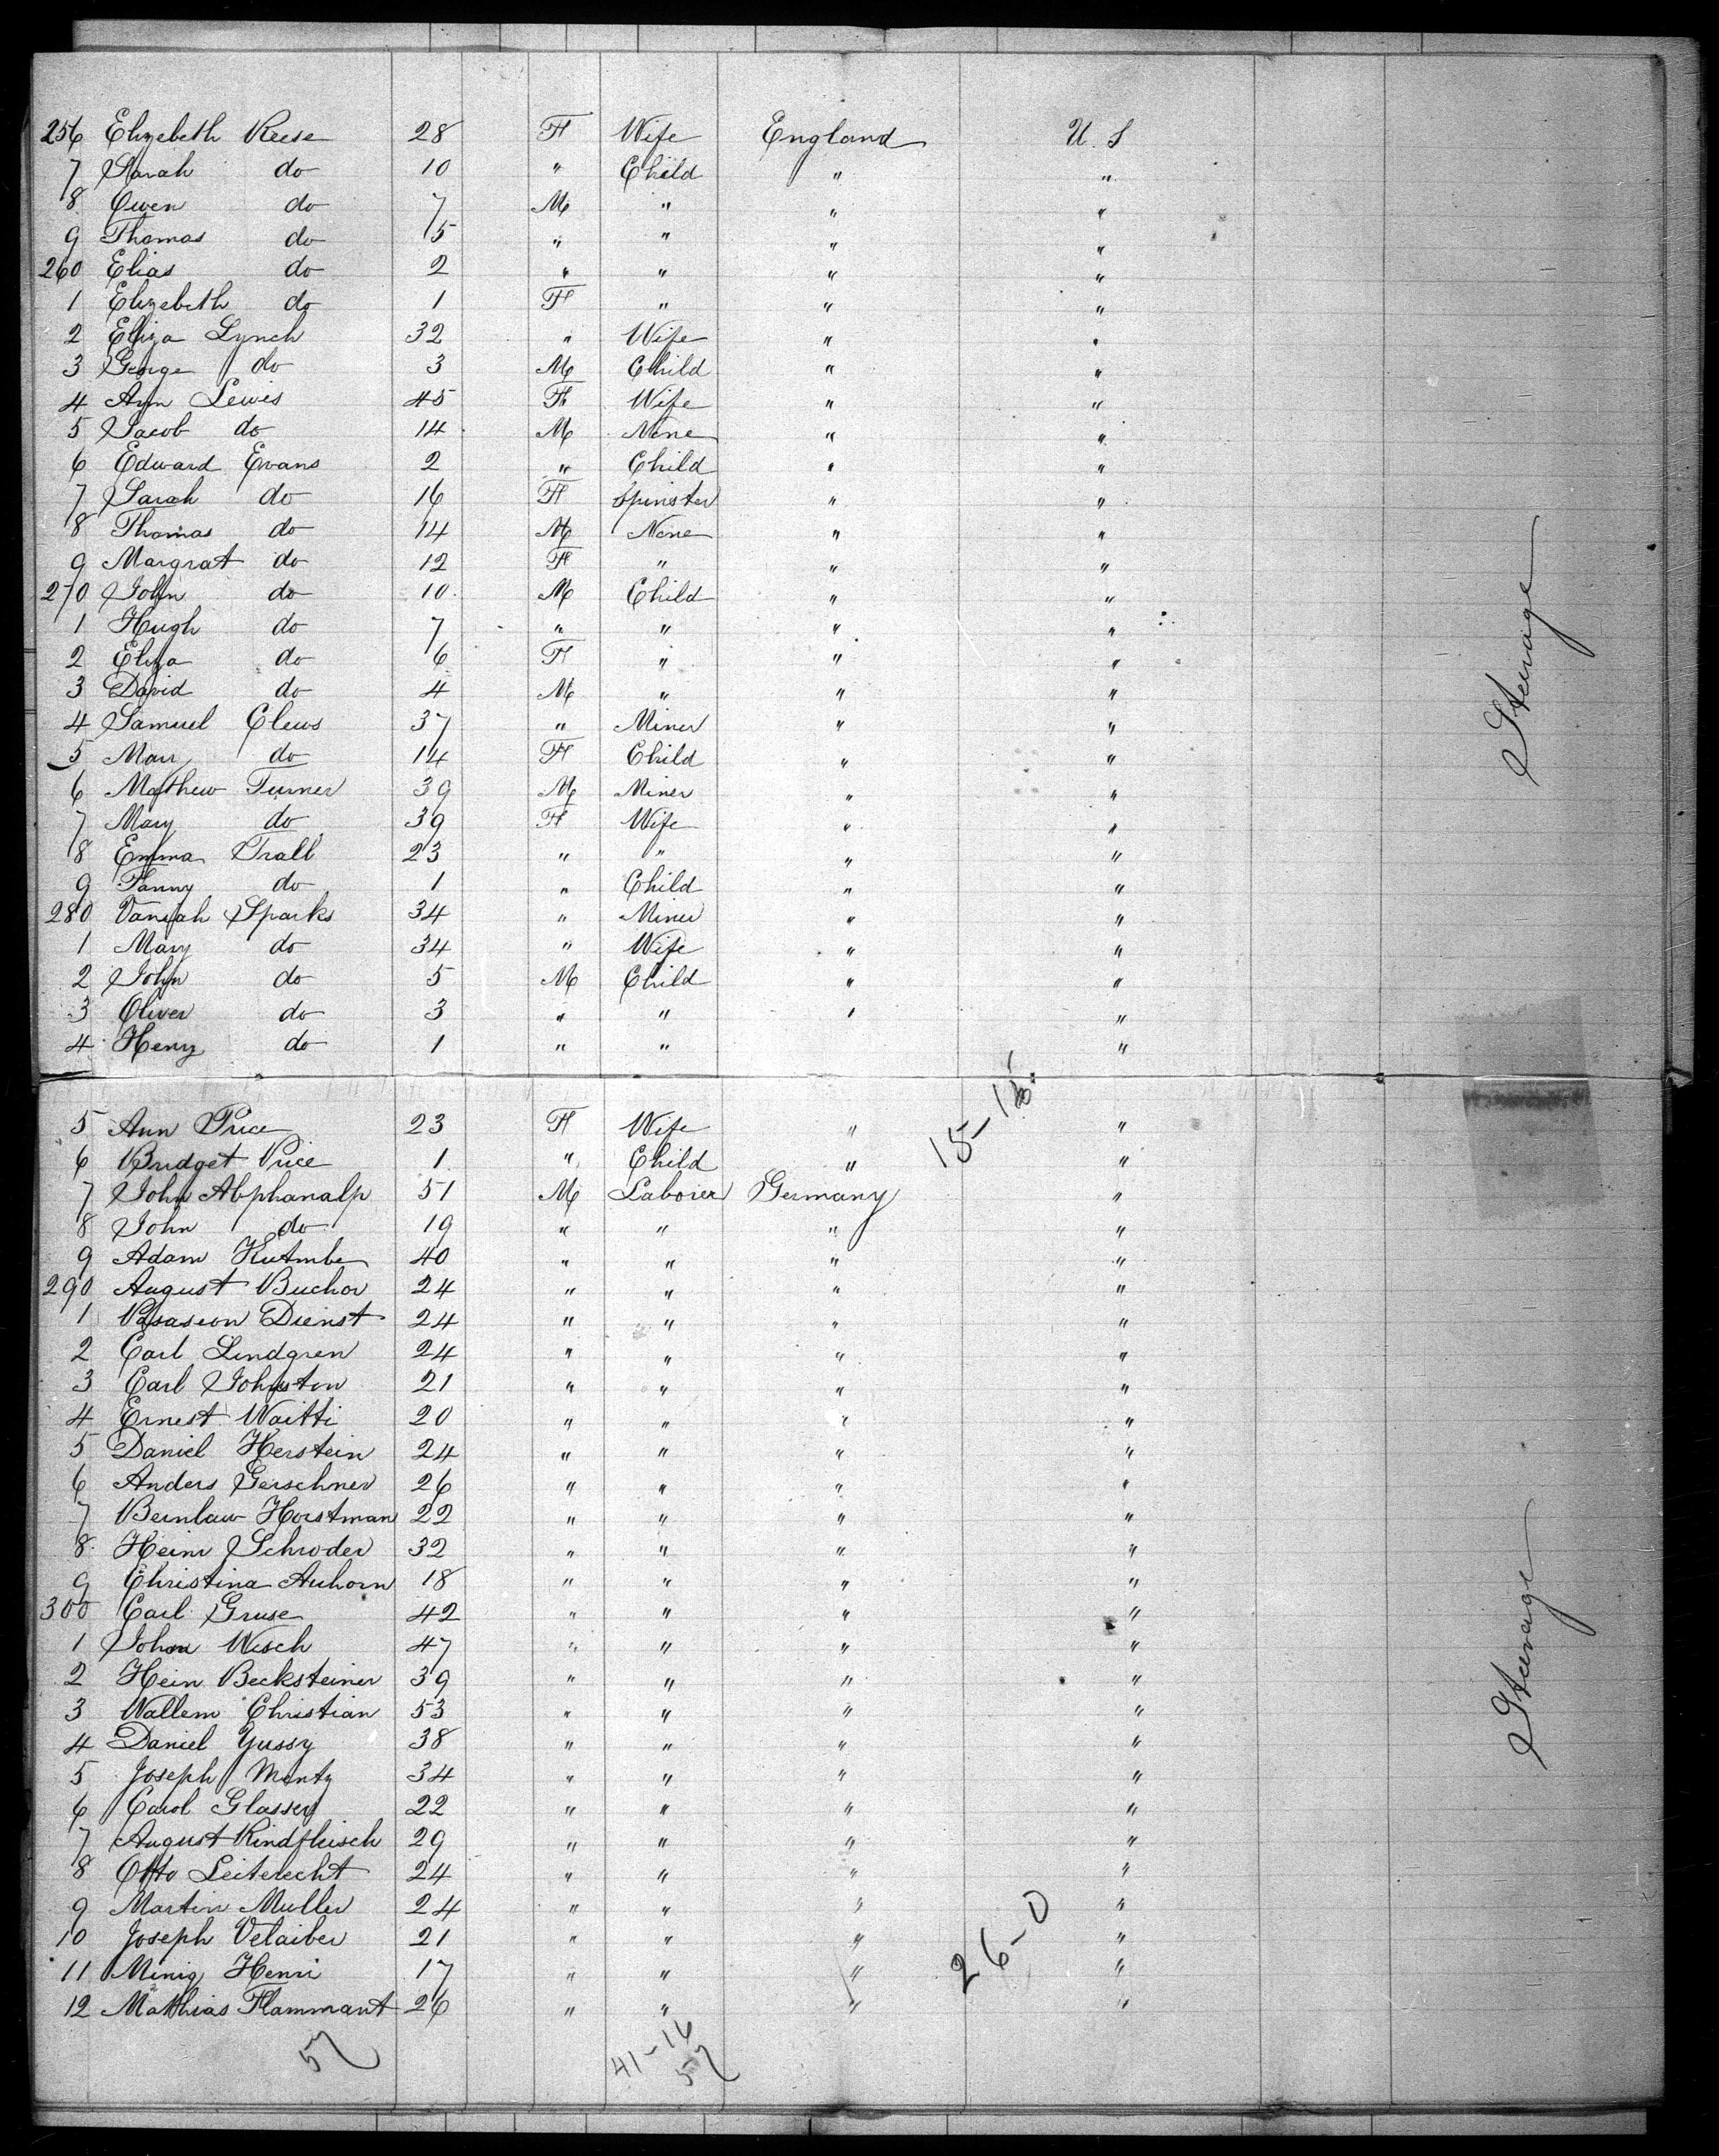 256 Elizebeth Reese 28 F Wife England U. S
7 Sarah do 10 " Child " "
8 Owen do 7 M " " "
9 Thomas do 5 " " " "
260 Elias do 2 " " " "
1 Elizebeth do 1 F " " "
2 Eliza Lynch 32 " Wife " "
3 George do 3 M Child " "
4 Ann Lewis 45 F Wife " "
5 Jacob do 14 M None " "
6 Edward Evans 2 " Child " "
7 Sarah do 16 F Spinster " "
8 Thomas do 14 M None " "
9 Margrat do 12 F " " "
270 John do 10 M Child " "
1 Hugh do 7 " " " "
2 Eliza do 6 F " " "
3 David do 4 M " " "
4 Samuel Clews 37 " Miner " "
5 Mary do 14 F Child " "
6 Mathew Turner 39 M Miner " "
7 Mary do 39 F Wife " "
8 Emma Trall 23 " " " "
9 Fanny do 1 " Child " "
280 Sparks 34 " Miner " "
1 Mary do 34 " Wife " "
2 John do 5 M Child " "
3 Oliver do 3 " " " "
4 Henry do 1 " " "
Steurage
15-15
5 Ann Price 23 F Wife " "
6 Bridget Price 1 " Child " "
7 John Abphanalp 51 M Laborer Germany "
8 John do 19 " " " "
9 Adam 40 " " " "
290 August Buchor 24 " " " "
1 Dienst 24 " " " "
2 Carl Lindgren 24 " " " "
3 Carl Johnston 21 " " " "
4 Ernest Waitti 20 " " " "
5 Daniel Herstein 24 " " " "
6 Anders Gerschner 26 " " " "
7 Bernlaw Horstman 22 " " " "
8 Heinr Schroder 32 " " " "
9 Christina Auhorn 18 " " " "
300 Carl Gruse 42 " " " "
1 John Wisch 47 " " " "
2 Hein Becksteiner 39 " " " "
3 Wallem Christian 53 " " " "
4 Daniel Yussy 38 " " " "
5 Joseph Mentz 34 " " " "
6 Carol Glasser 22 " " " "
7 August Rindfleisch 29 " " " "
8 Otto Leiterecht 24 " " " "
9 Martin Muller 24 " " " "
10 Joseph Velaiber 21 " " " "
11 Minig Henri 17 " " " "
12 Matthias Flammant 26 " " " "
Steurage
26-0
57
41-16
57